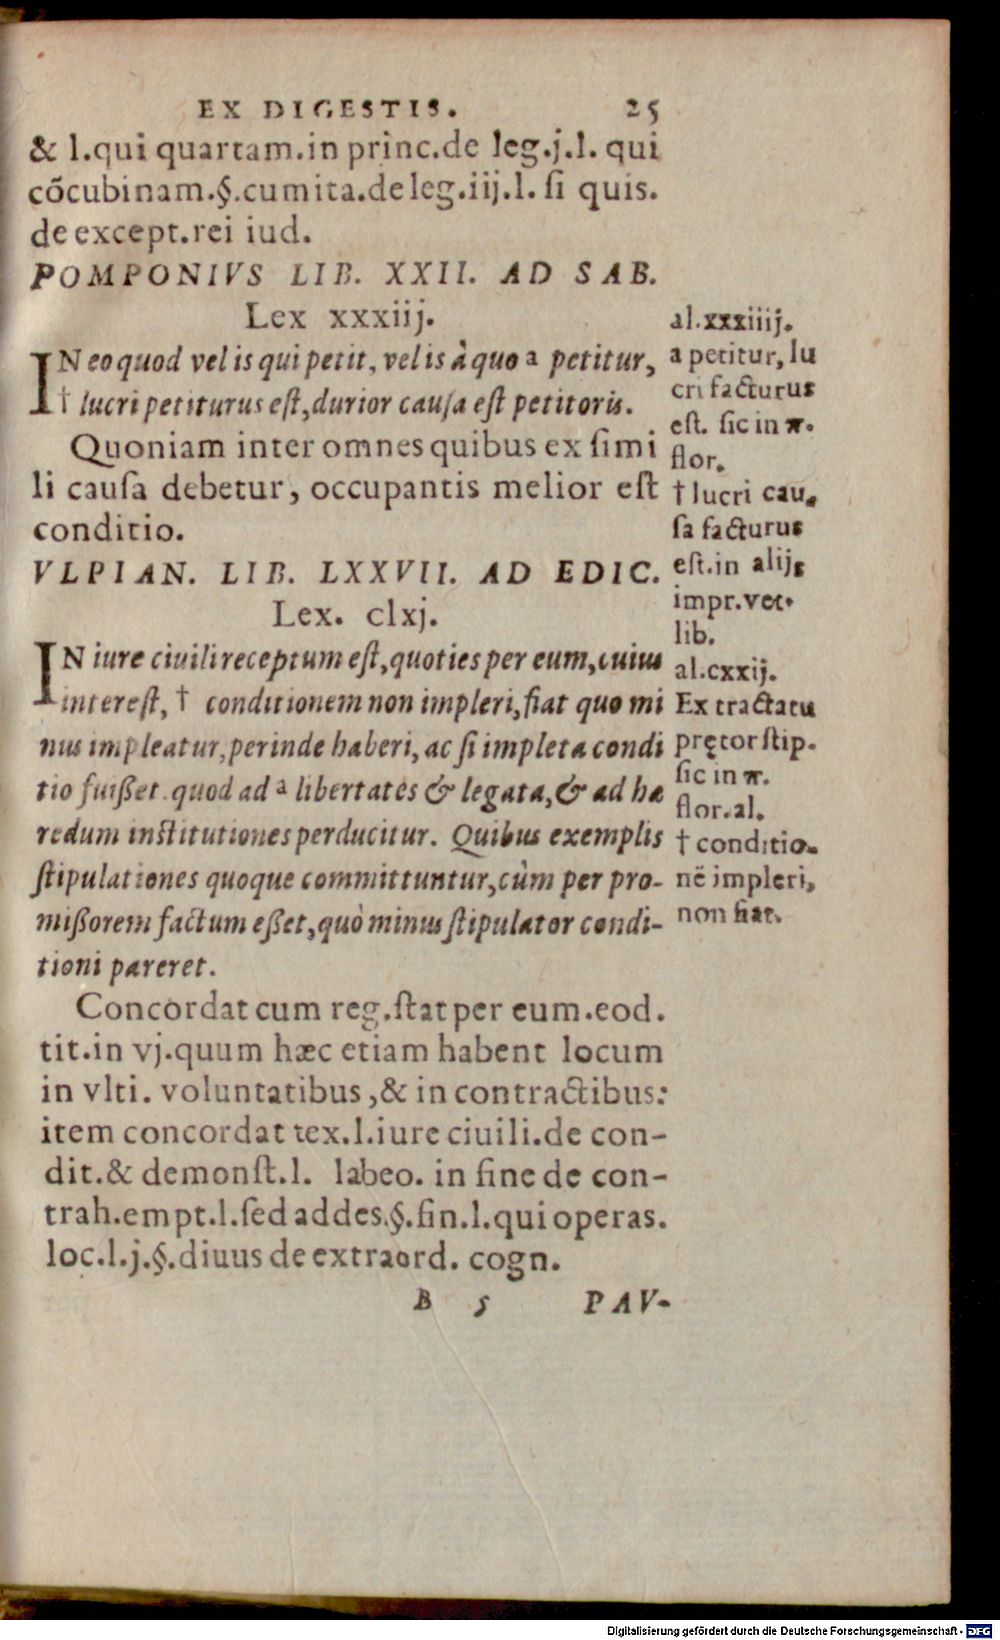 EX DIGESTIS. 25
& l.qui quartam.in princ.de leg.j.l. qui
cõcubinam.§.cumita.de leg.iij.l. ſi quis.
de except.rei iud.
POMPONIVS LIB. XXII. AD SAB.
Lex xxxiij.
IN eo quod vel is qui petit, vel is à quo a petitur,
† lucri petiturus eſt, durior cauſa eſt petitoris.
Quoniam inter omnes quibus ex ſimi
li cauſa debetur, occupantis melior eſt
conditio.
VLPIAN. LIB. LXXVII. AD EDIC.
Lex. clxj.
IN iure ciuili receptum eſt, quoties per eum, cuius
intereſt, † conditionem non impleri, fiat quo mi
nus impleatur, perinde haberi, ac ſi impleta condi
tio fuißet. quod ad a libertates & legata, & ad hæ
redum inſtitutiones perducitur. Quibus exemplis
ſtipulationes quoque committuntur, cùm per pro-
mißorem factum eßet, quò minus ſtipulator condi-
tioni pareret.
Concordat cum reg.ſtat per eum.eod.
tit.in vj.quum hæc etiam habent locum
in vlti. voluntatibus, & in contractibus:
item concordat tex.l.iure ciuili.de con-
dit.& demonſt.l. labeo. in fine de con-
trah.empt.l.ſed addes.§.fin.l.qui operas.
loc.l.j.§.diuus de extraord. cogn.
B 5 PAV-
al.xxxiiij.
a petitur, lu
cri facturus
eſt. ſic in π.
flor.
† lucri cau-
ſa facturus
eſt.in alijs
impr.vet.
lib.
al.cxxij.
Ex tractatu
pręter ſtip.
ſic in π.
flor.al.
† conditio-
nẽ impleri,
non fiat.
Digitalisierung gefördert durch die Deutsche Forschungsgemeinschaft - DFG